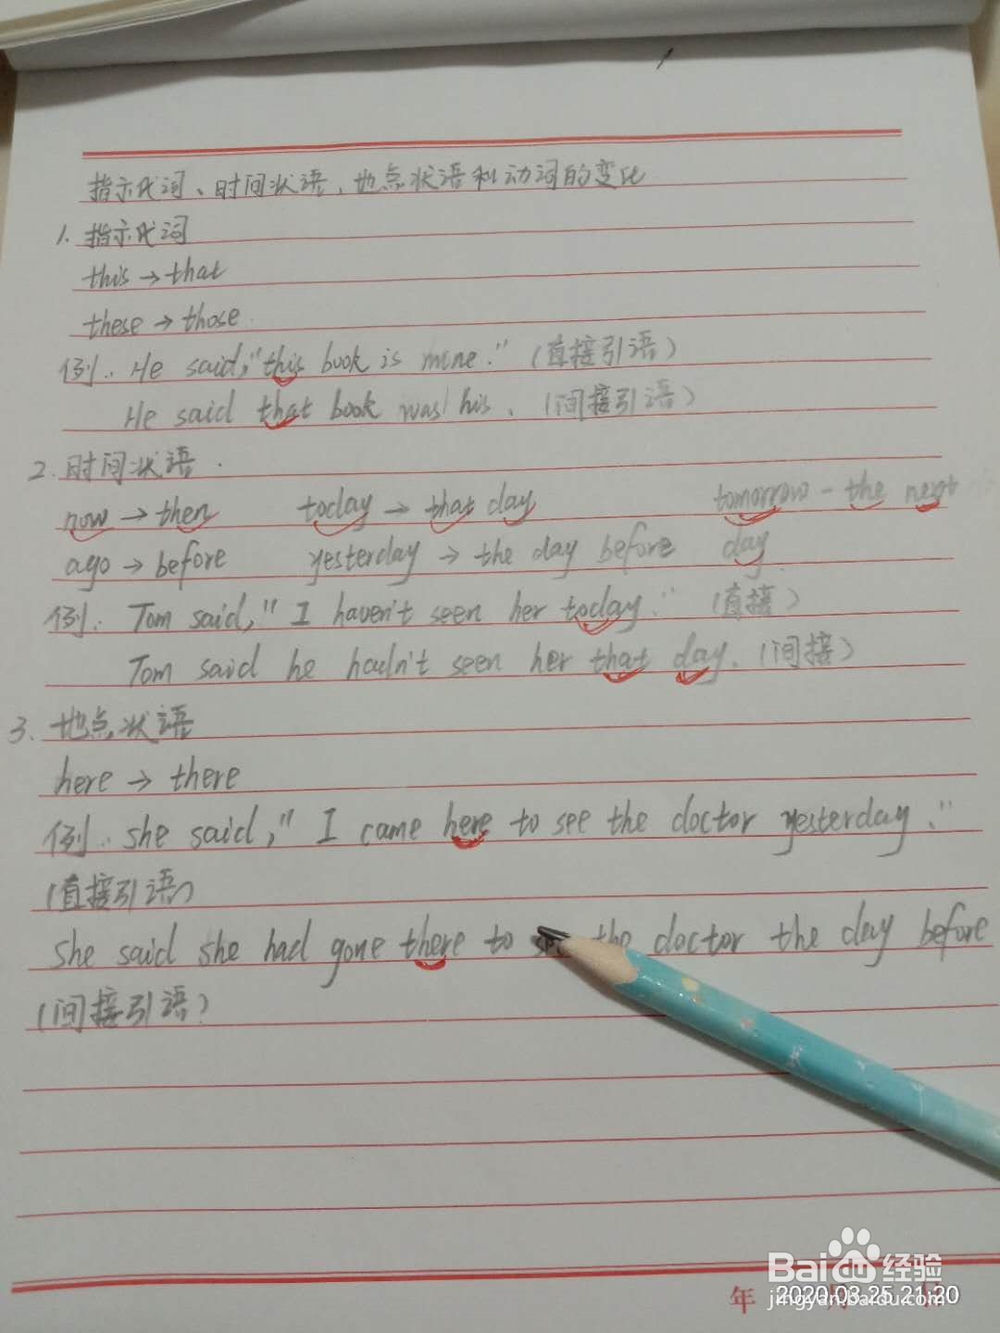 指示代词、时间状语、地点状语和动词的变化
1. 指示代词
this → that
these → those.
例. He said,"this book is mine." (直接引语)
He said that book was his. (间接引语)
2. 时间状语.
now → then today → that day tomorrow - the next
ago → before yesterday → the day before day.
例. Tom said," I haven't seen her today." (直接)
Tom said he hadn't seen her that day. (间接)
3. 地点状语
here → there
例. she said," I came here to see the doctor yesterday."
(直接引语)
she said she had gone there to see the doctor the day before
(间接引语)
Baidu 经验
jingyan.baidu.com
年 月 日
2020.03.25 21:20